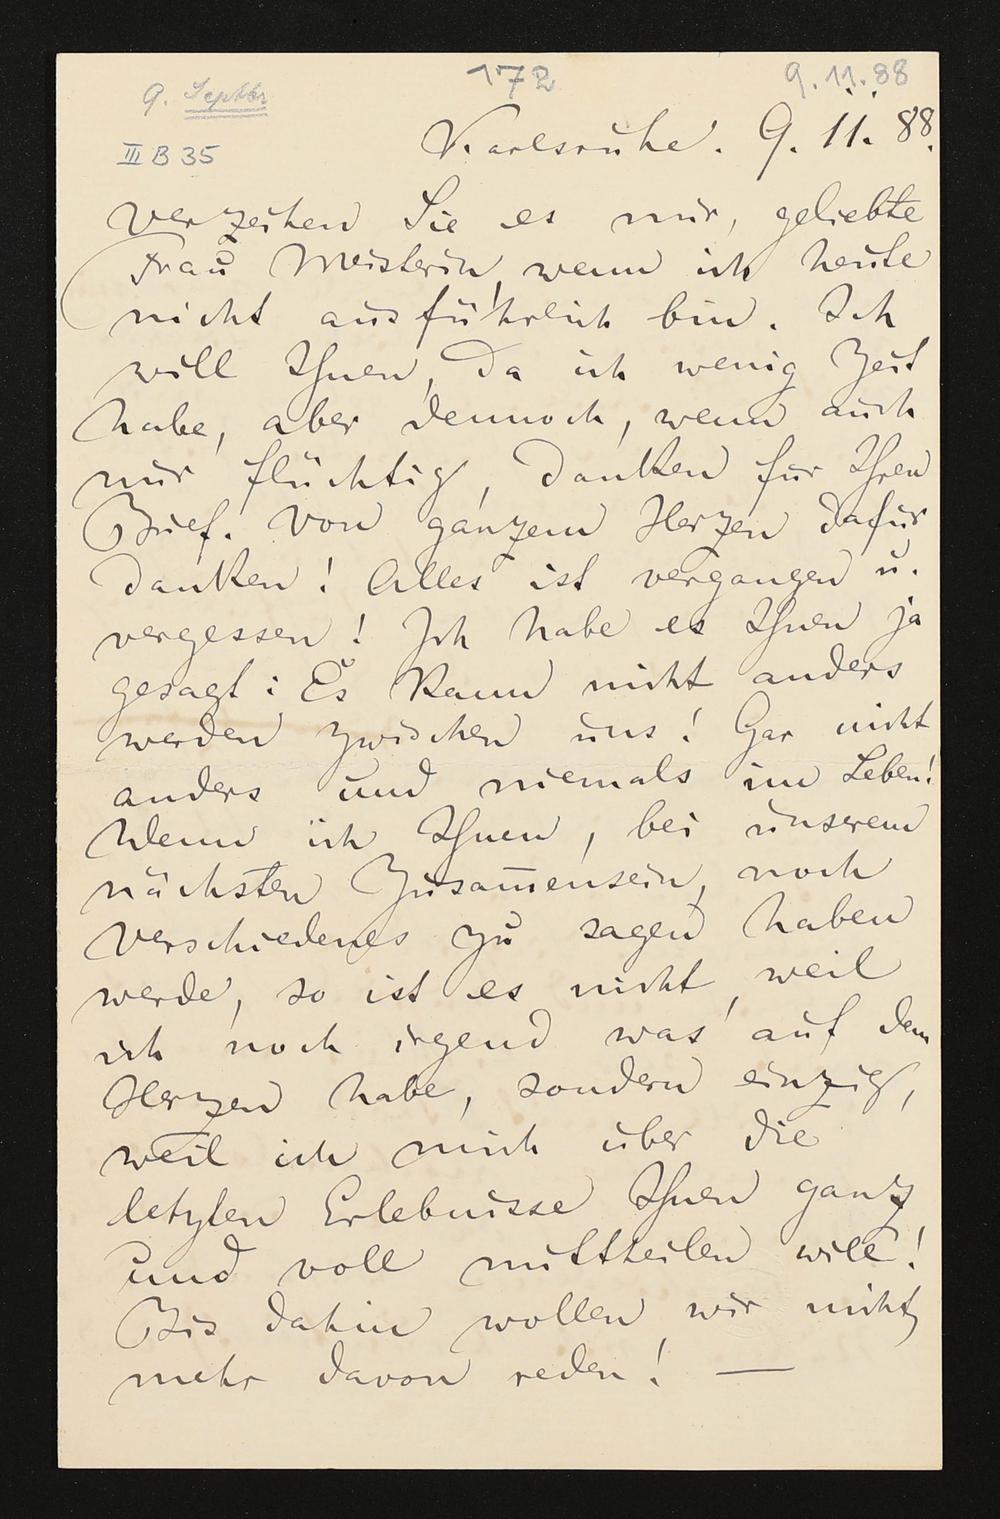 9. Septbr
172
9.11.88
III B 35
Karlsruhe. 9. 11. 88.
Verzeihen Sie es mir, geliebte
Frau Meisterin, wenn ich heute
nicht ausführlich bin. Ich
will Ihnen, da ich wenig Zeit
habe, aber dennoch, wenn auch
nur flüchtig, danken für Ihren
Brief. Von ganzem Herzen dafür
danken! Alles ist vergangen u.
vergessen! Ich habe es Ihnen ja
gesagt: Es kann nicht anders
werden zwischen uns! Gar nicht
anders und niemals im Leben!
Wenn ich Ihnen, bei unserem
nächsten Zusam̅ensein, noch
Verschiedenes zu sagen haben
werde, so ist es nicht, weil
ich noch irgend was auf dem
Herzen habe, sondern einzig,
weil ich mich über die
letzten Erlebnisse Ihnen ganz
und voll mittheilen will!
Bis dahin wollen wir nicht
mehr davon reden! —